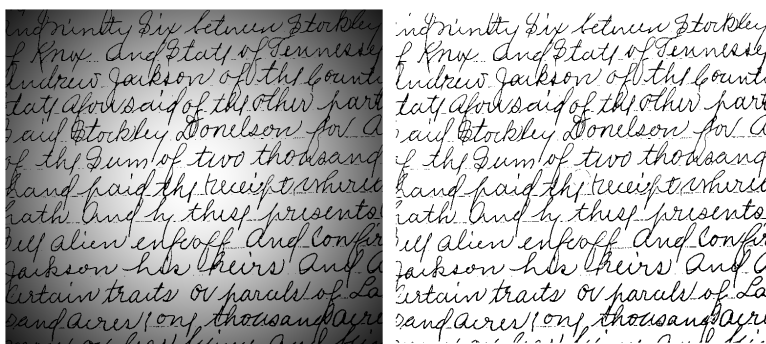 ninty Six between Stockley
f Knox and State of Tennessee
Andrew Jackson of the County
tate aforesaid of the other part
said Stockley Donelson for a
of the Sum of two thousand
hand paid the receipt where
hath and by these presents
Sell alien enfeoff and Confir
Jackson his heirs And a
Certain traits or parcels of La
sand acres one thousand acre
ninty Six between Stockley
f Knox and State of Tennessee
Andrew Jackson of the County
tate aforesaid of the other part
said Stockley Donelson for a
of the Sum of two thousand
hand paid the receipt where
hath and by these presents
Sell alien enfeoff and Confir
Jackson his heirs And a
Certain traits or parcels of La
sand acres one thousand acre